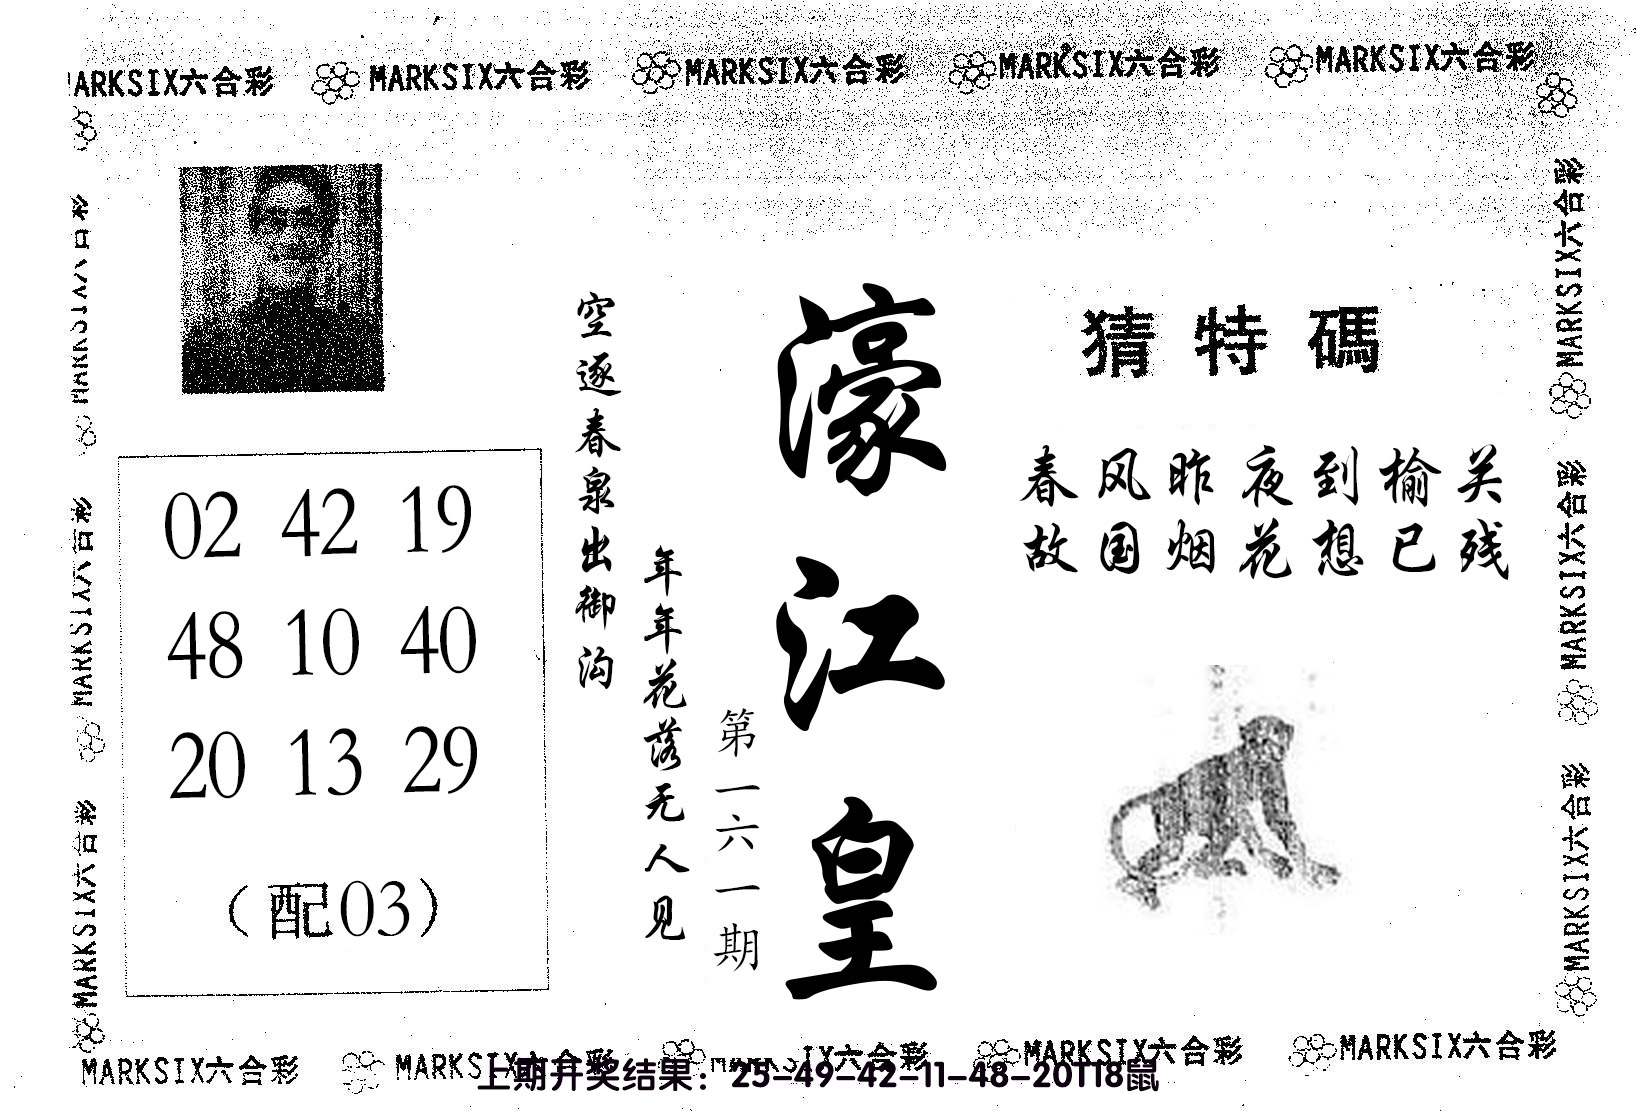 MARKSIX六合彩 MARKSIX六合彩 MARKSIX六合彩 MARKSIX六合彩
猜特碼
春风昨夜到榆关
故国烟花想已残
濠江皇
第一六一期
年年花落无人见
空逐春泉出御沟
02 42 19
48 10 40
20 13 29
(配03)
MARKSIX六合彩
MARKSIX六合彩
MARKSIX六合彩
MARKSIX六合彩
MARKSIX六合彩
MARKSIX六合彩 MARKSIX六合彩 MARKSIX六合彩
上期开奖结果：25-49-42-11-48-20T18鼠